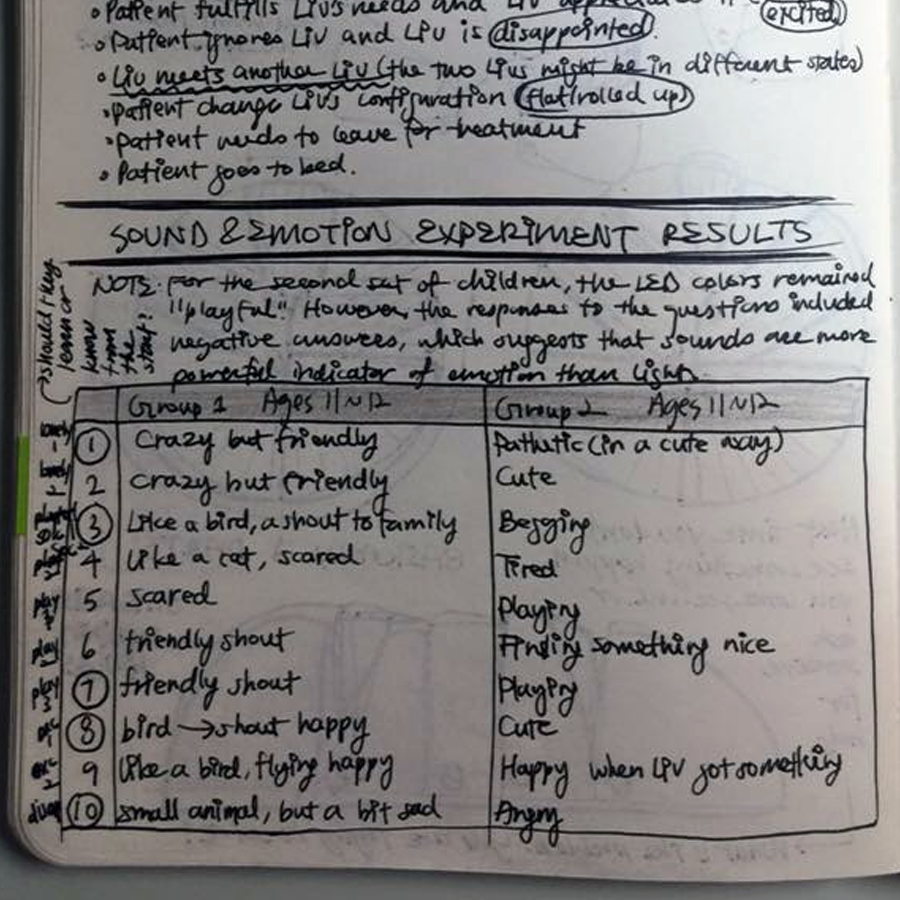 • Patient fulfills Liv's needs and Liv appreciates it (excited)
• Patient ignores Liv and Liv is disappointed.
• Liv meets another Liv (the two Livs might be in different states)
• Patient change Liv's configuration (flat/rolled up)
• Patient needs to leave for treatment
• Patient goes to bed.
SOUND & EMOTION EXPERIMENT RESULTS
→ should they learn or know from the start?
NOTE: For the second set of children, the LED colors remained
"playful". However, the responses to the questions included
negative answers, which suggests that sounds are more
powerful indicator of emotion than light.
Group 1 Ages 11~12 Group 2 Ages 11~12
1 Crazy but friendly Pathetic (in a cute way)
2 crazy but friendly Cute
3 Like a bird, a shout to family Begging
4 Like a cat, scared Tired
play 5 scared Playing
play 6 friendly shout Finding something nice
play 3 7 friendly shout Playing
8 bird → shout happy Cute
9 Like a bird, flying happy Happy when Liv got something
10 small animal, but a bit sad Angry